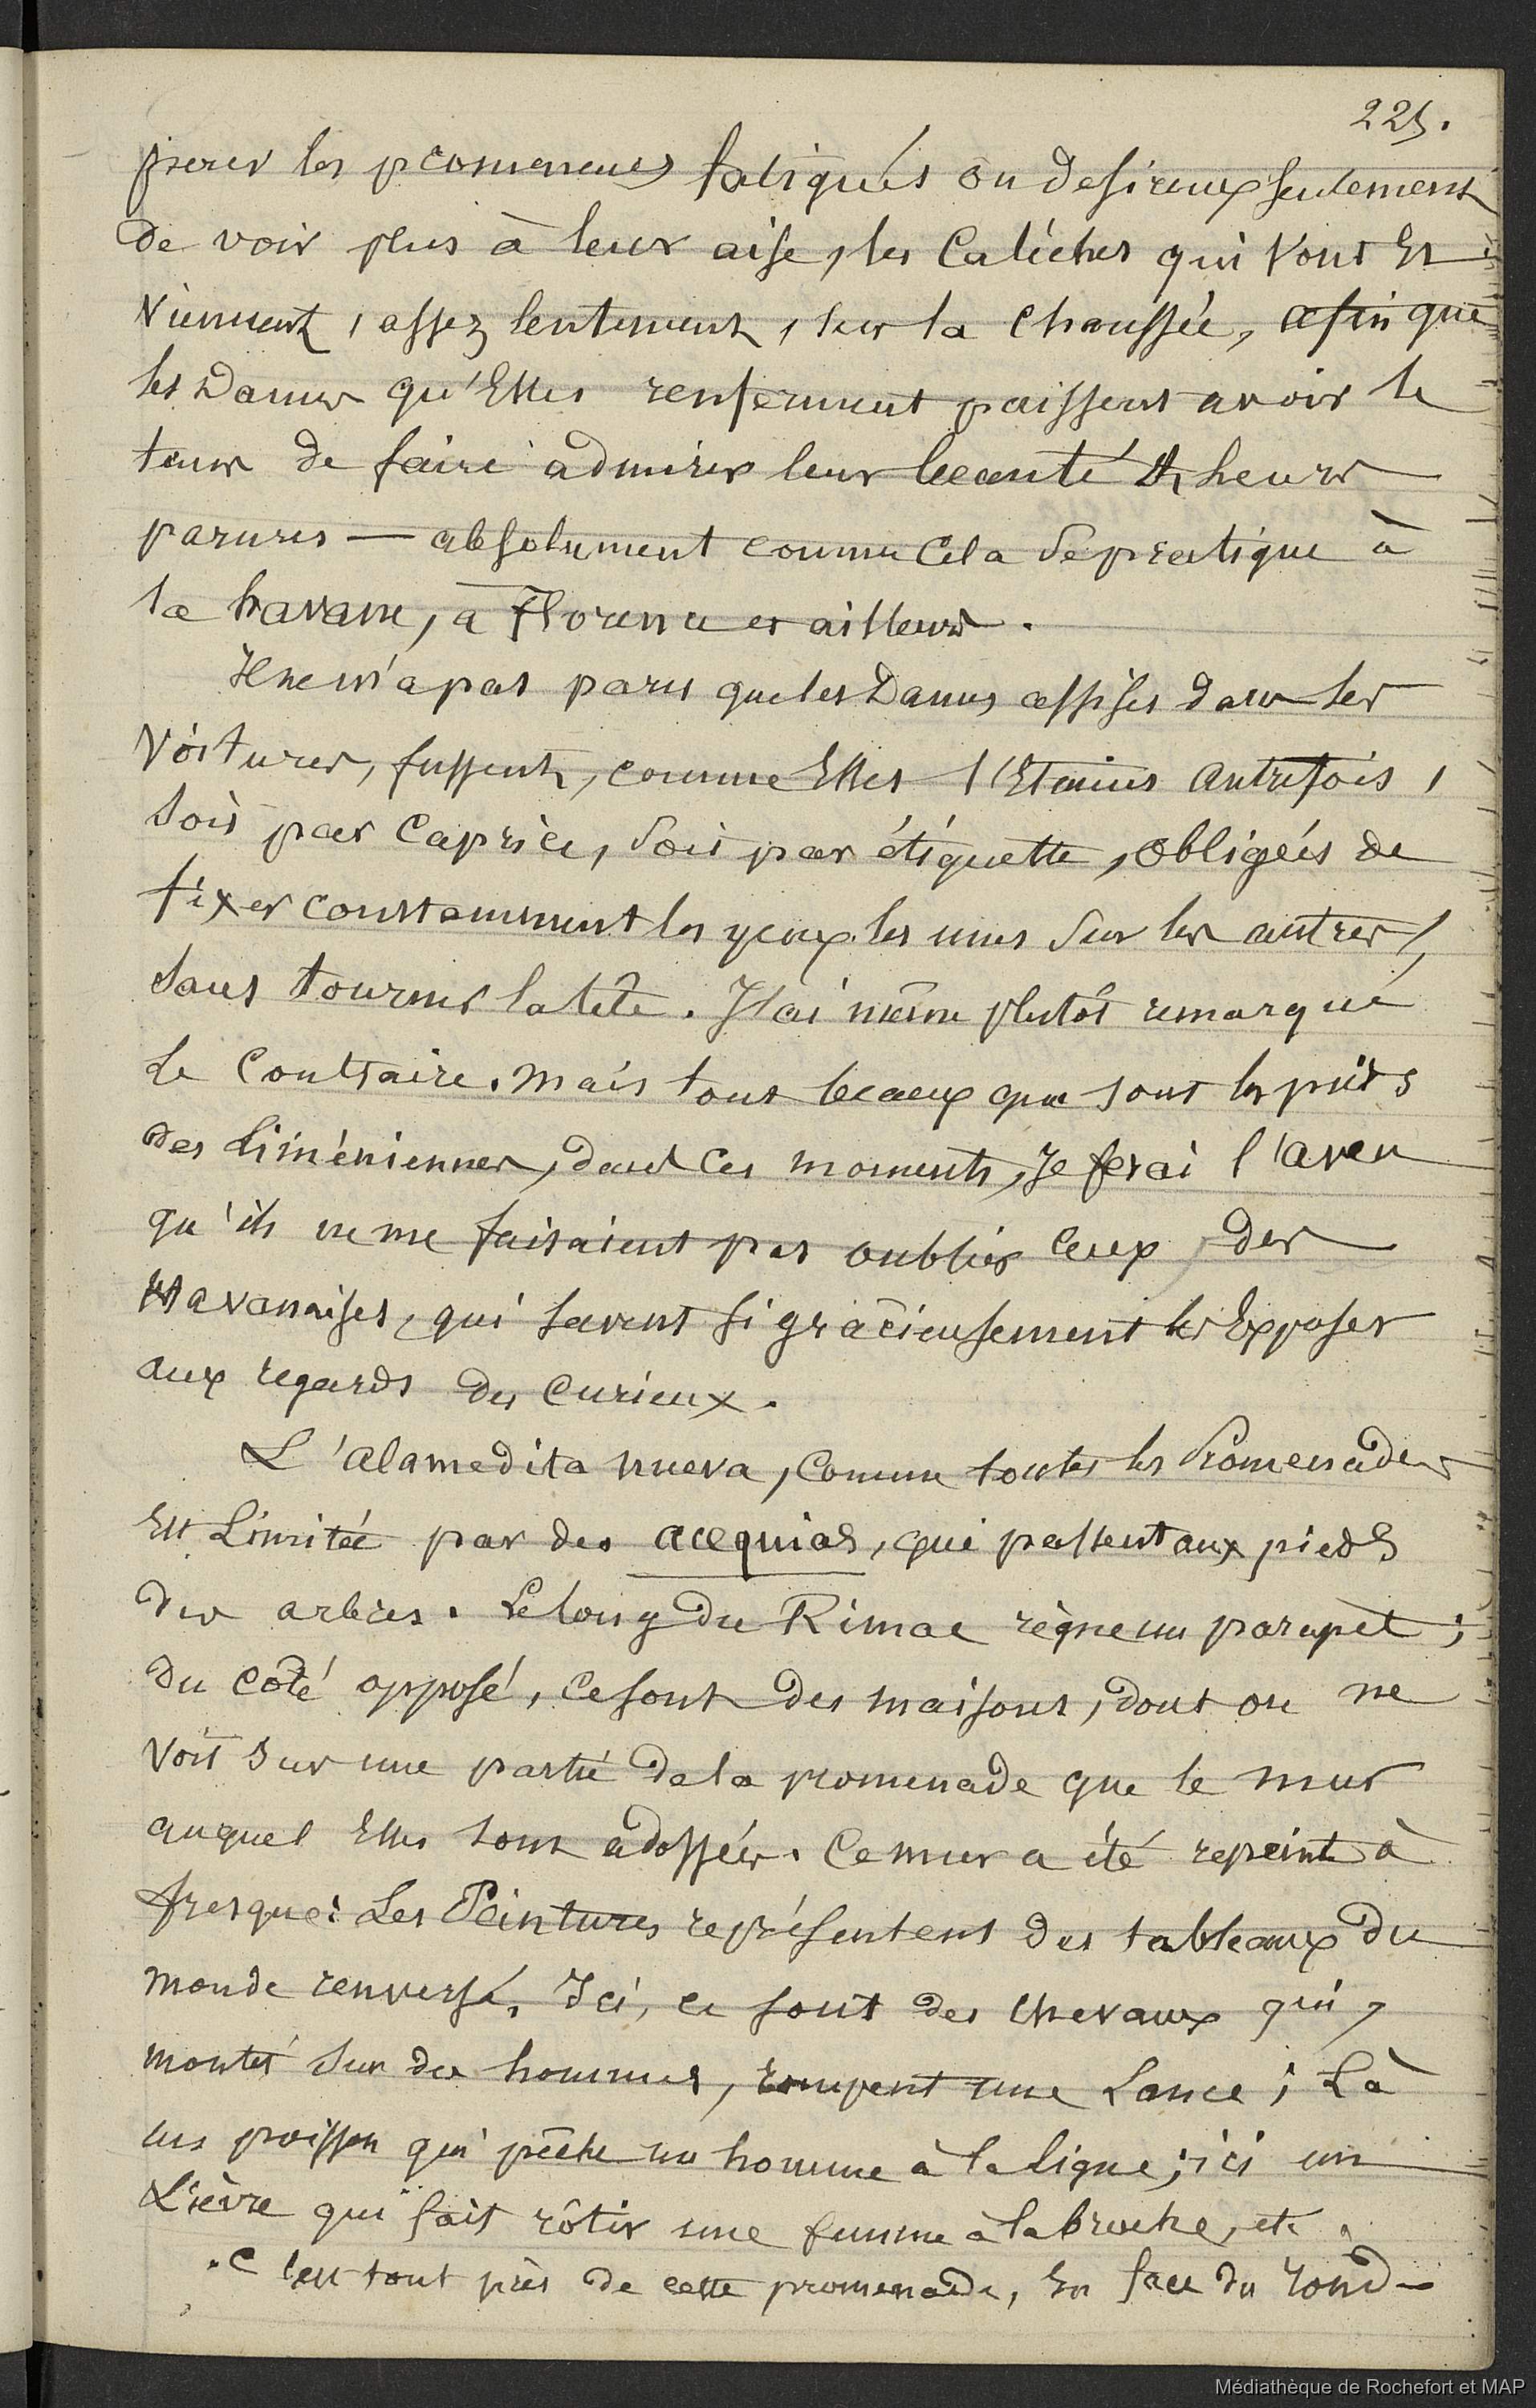 225.
poser les promeneurs fatigués ou desireux seulement
de voir plus à leur aise, les Calèches qui vont Et
viennent, assez lentement, sur la chaussée, afin que
les Dames qu'Elles renferment puissent avoir le
tems de faire admirer leur beauté & leurs
parures — absolument comme cela se pratique à
la havane, à Florence et ailleurs.
Il ne m'a pas paru que les Dames assises dans les
voitures, fussent, comme Elles l'Etaient autrefois,
soit par Caprice, soit par étiquette, obligées de
fixer constamment les yeux les unes sur les autres,
sans tourner la tête. J'ai même plutôt remarqué
le Contraire. Mais tout beaux que sont les pieds
des Liméniennes, dans ces moments, Je ferai l'aveu
qu'ils ne me faisaient pas oublier ceux des
Havanaises, qui savent si grâcieusement les Exposer
aux regards des Curieux.
L'alamedita nueva, comme toutes les Promenades
Est Limitée par des acequias, qui passent aux pieds
des arbres. Le long du Rimac règne un parapèt;
du côté opposé, ce sont des maisons, dont on ne
voit sur une partie de la promenade que le mur
auquel Elles sont adossées. Ce mur a été repeint à
fresque: Les Peintures représentent des tableaux du
monde renversé. Ici, ce sont des chevaux qui,
montés sur des hommes, rompent une Lance; Là
un poisson qui pêche un homme à la ligne; ici un
Lièvre qui fait rôtir une femme à la broche, etc.
C'est tout près de cette promenade, En face du rond-
Médiathèque de Rochefort et MAP